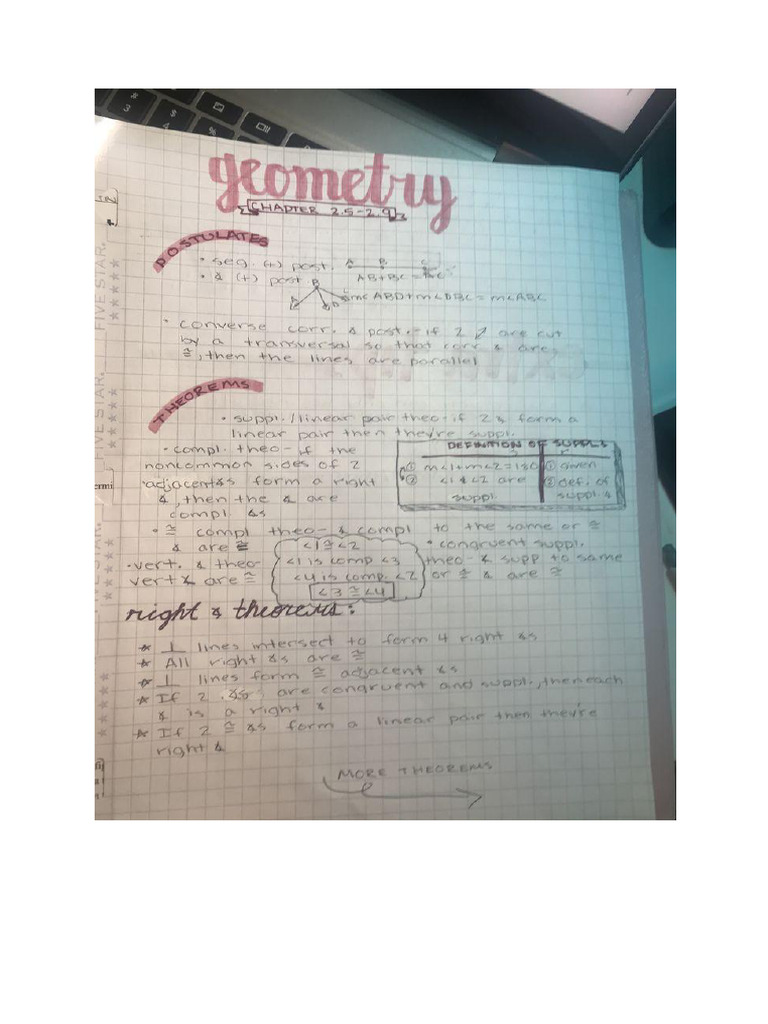 geometry
CHAPTER 2.5-2.9
POSTULATES
• seg. (+) post. A B C
AB+BC=AC
• ∡ (+) post B
m<ABD+m<DBC=m<ABC
• converse corr. ∡ post.- if 2 // are cut
by a transversal so that corr ∡ are
≅, then the lines are parallel
THEOREMS
• suppl./linear pair theo-if 2 ∡s form a
linear pair then they're suppl.
• compl. theo-if the
noncommon sides of 2
adjacent ∡s form a right
∡, then the ∡ are
compl ∡s
DEFINITION OF SUPPL ∡
① m<1+m<2=180 ① given
② <1 & <2 are ② def. of
suppl. suppl. ∡
• ≅ compl theo- ∡ compl to the same or ≅
∡ are ≅
<1≅<2
<1 is comp <3
<4 is comp. <2
<3≅<4
• congruent suppl.
theo- ∡ supp to same
or ≅ ∡ are ≅
• vert. ∡ theo
vert ∡ are ≅
right ∡ theorems:
* ⊥ lines intersect to form 4 right ∡s
* All right ∡s are ≅
* ⊥ lines form ≅ adjacent ∡s
* If 2 ∡s are congruent and suppl., then each
∡ is a right ∡
* If 2 ≅ ∡s form a linear pair then they're
right ∡
MORE THEOREMS
FIVE STAR.
FIVE STAR.
FIVE STAR.